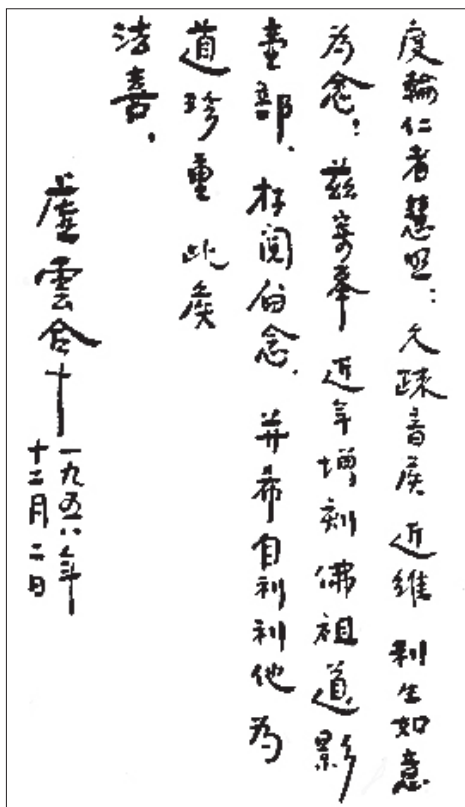 度輪仁者慧照：久疎音候 近維 利生如意
為念：茲寄奉 近年增刻佛祖道影
壹部、存閱念、并希自利利他為
道珍重 此候
法喜、
虛雲合十
一九五八年
十二月二日